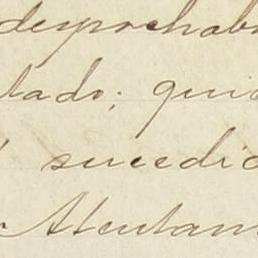 desprohab
tado; qui
sucedi
Atentam